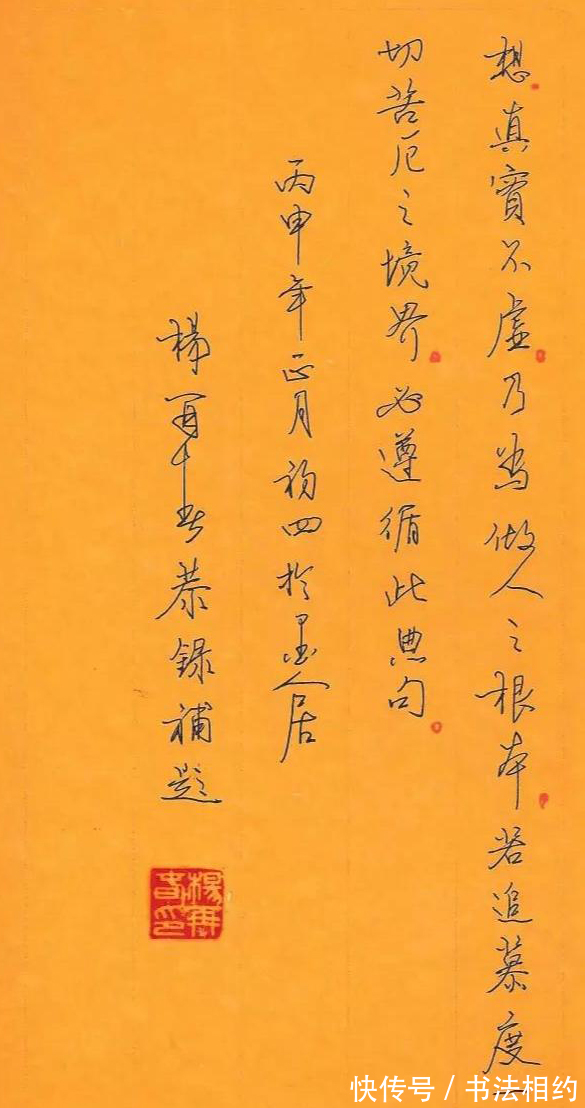 想真實不虛乃為做人之根本若追慕度一
切苦厄之境界必遵循此典句
丙申年正月初四於墨人居
楊再春恭録補題
楊再春印
快传号 / 书法相约